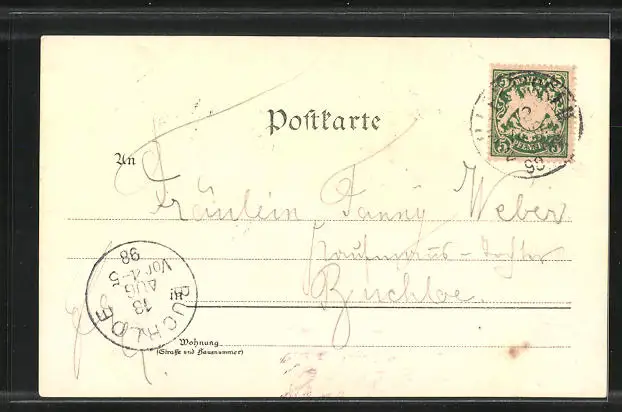 BAYERN
5 PFENNIG 5
98
Postkarte
An
Fräulein Fanny Weber
Kaufmanns-tochter
in
Buchloe.
BUCHLOE
13
AUG
Vor
98
Wohnung
(Straße und Hausnummer)